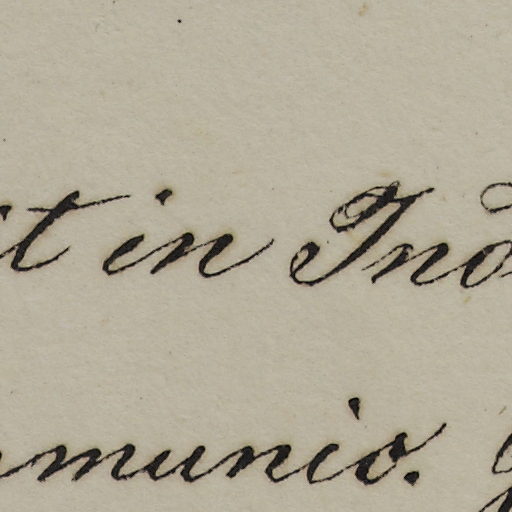 it in Ind
mmunio.